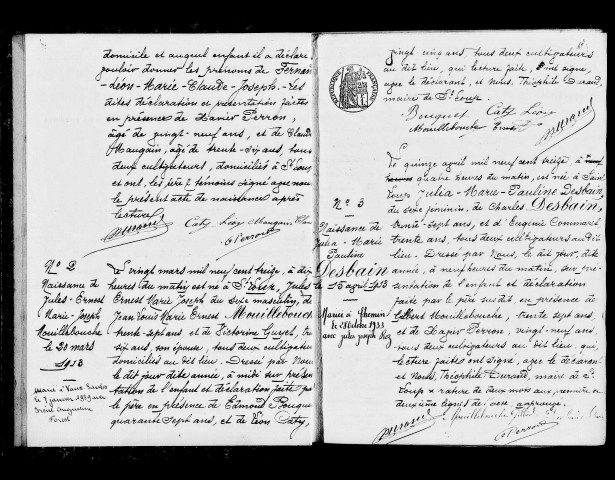 domicile et auquel enfant il a déclaré
vouloir donner les prénoms de Fernand
Léon-Marie-Claude-Joseph. Les
dites déclaration et présentation faites
en présence de Xavier Perron,
âgé de vingt-neuf ans, et de Claude
Maugain, âgé de trente-six ans, tous
deux cultivateurs, domiciliés à St Loup
et ont, les père et témoins signé avec nous
le présent acte de naissance après
lecture
Durand Caty Léon Maugain Claude
Perron
No 2
Naissance de
Jules-Ernest
Marie-Joseph
Mouillebouche
le 20 mars
1913
Marié à
le 7 janvier 1939 avec
Le vingt mars mil neuf cent treize, à dix
heures du matin est né à St Loup, Jules
Ernest Marie Joseph du sexe masculin, de
Jean Louis Marie Ernest Mouillebouche
trente-sept ans et de Victorine Guyot, trente
six ans, son épouse, tous deux cultivateurs
domiciliés au dit lieu. Dressé par Nous
le dit jour dite année, à midi sur présen
tation de l'enfant et déclaration faite par
le père en présence de Edmond Bouquet
quarante sept ans, et de Léon Caty,
vingt cinq ans, tous deux cultivateurs
au dit lieu, qui lecture faite ont signé,
avec le déclarant, et Nous, Théophile Durand,
maire de St Loup.
Bouquet Caty Léon
Mouillebouche Ernest Durand
No 3
Naissance de
Julia-Marie
Pauline
Desbain
le 15 avril 1913
Marié à
le 28 octobre 1933
avec Jules Joseph
Le quinze avril mil neuf cent treize à
quatre heures du matin, est née à Saint
Loup Julia-Marie-Pauline Desbain,
du sexe féminin, de Charles Desbain,
trente-sept ans, et d'Eugénie Commaret
trente ans, tous deux cultivateurs au dit
lieu. Dressé par Nous, le dit jour, dite
année, à neuf heures du matin, sur pré
sentation de l'enfant et déclaration
faite par le père susdit, en présence de
Albert Mouillebouche, trente sept ans,
et de Xavier Perron, vingt-neuf ans,
tous deux cultivateurs au dit lieu, qui,
lecture faite ont signé, avec le déclarant
et Nous, Théophile Durand, maire de St
Loup * rature de deux mots aux première et
deuxième lignes de l'acte approuvé.
Durand Mouillebouche
Perron